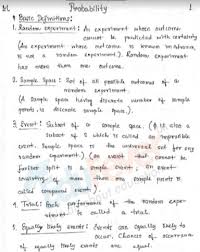 Probability
1.
* Basic Definitions:
1. Random experiment: An experiment whose outcome
cannot be predicted with certainty
(An experiment whose outcome is known in advance,
is not a random experiment). Random experiment
has more than one outcome.
2. Sample Space: Set of all possible outcomes of a
random experiment.
(A sample space having discrete number of sample
points, is discrete sample space).
3. Event: Subset of a sample space (ϕ is also a
subset of S which is called an impossible
event. Sample space is the universal set for any
random experiment.) (an event that cannot be
further split is a simple event, an event
consisting of more than one sample points is
called compound event).
4. Trial: Each performance of the random exper-
iment is called a trial.
5. Equally likely events: Events are equally likely to
occur. Chances of occurrence
of equally likely events are equal.